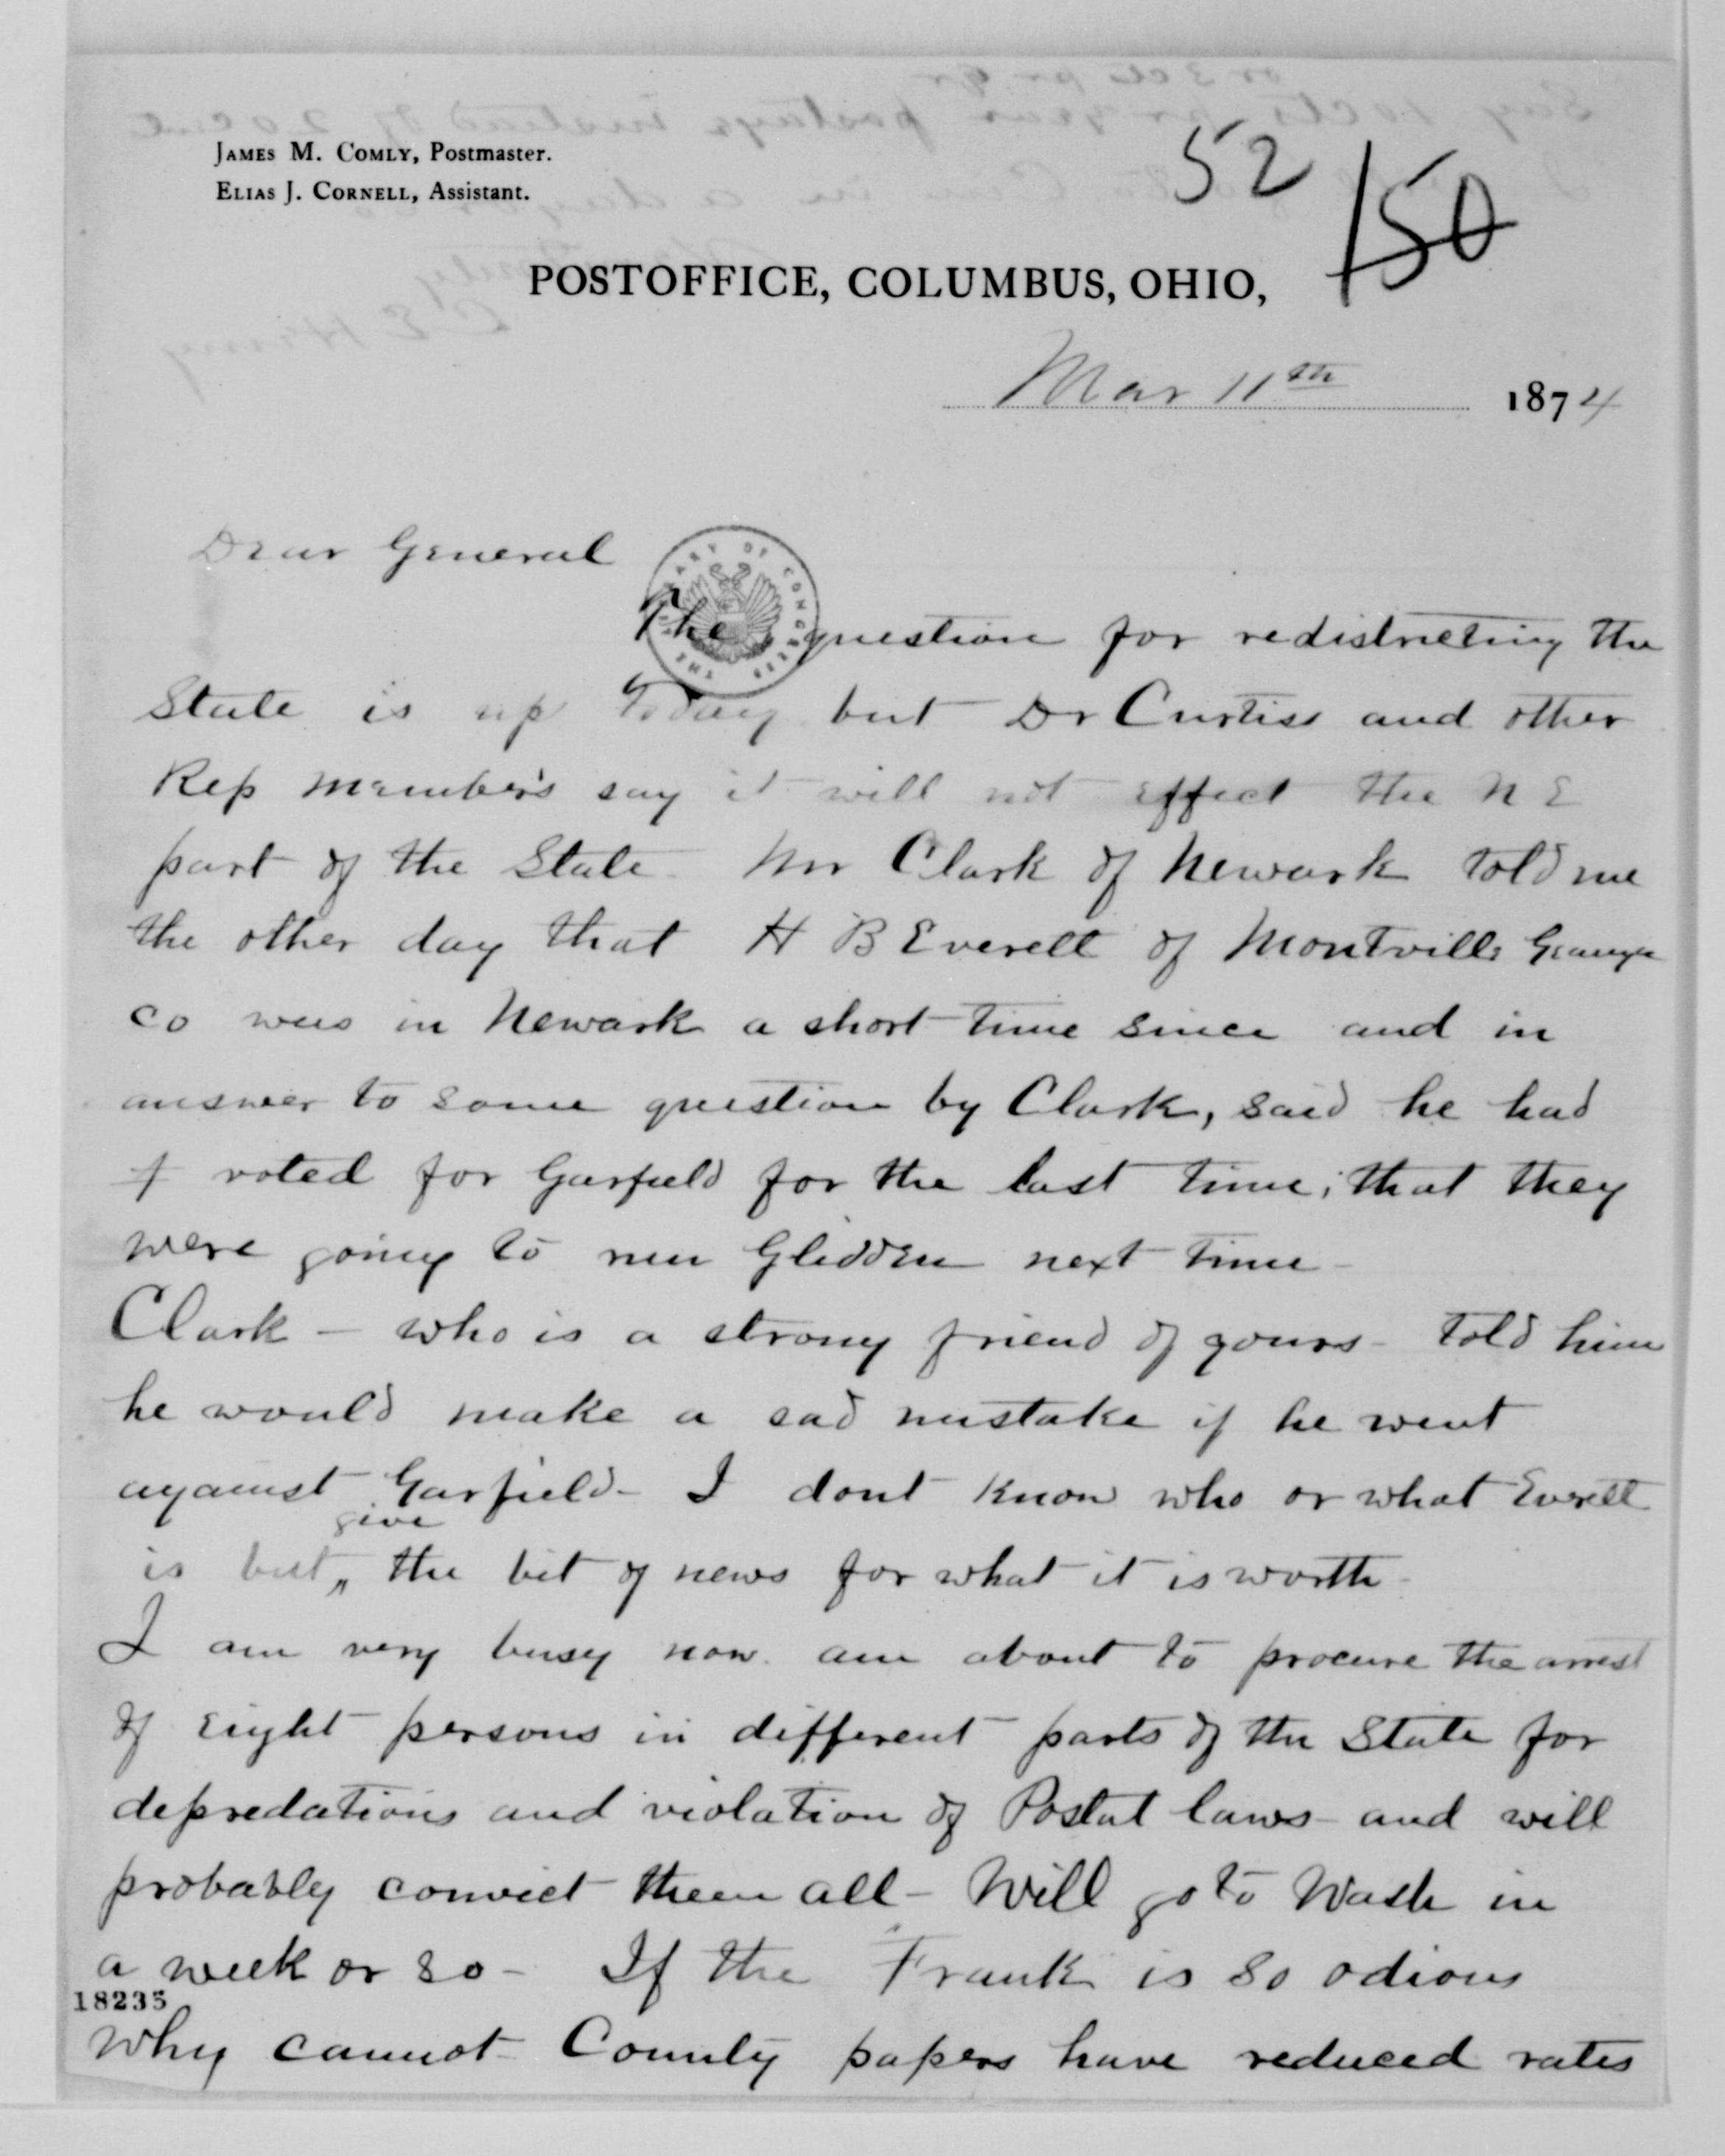 James M. Comly, Postmaster.
Elias J. Cornell, Assistant.
52
150
POSTOFFICE, COLUMBUS, OHIO,
Mar 11th 1874
Dear General
THE LIBRARY OF CONGRESS
The question for redistricting the
State is up today but Dr Curtiss and other
Rep members say it will not effect the N E
part of the State – Mr Clark of Newark told me
the other day that H B Everett of Montville Geauga
co was in Newark a short time since and in
answer to some question by Clark, said he had
voted for Garfield for the last time; that they
were going to run Glidden next time –
Clark – who is a strong friend of yours – told him
he would make a sad mistake if he went
against Garfield – I dont know who or what Everett
give
is but,, the bit of news for what it is worth –
I am very busy now. am about to procure the arrest
of eight persons in different parts of the State for
depredations and violation of Postal laws – and will
probably convict them all – Will go to Wash in
a week or so – If the Frank is so odious
18235
why cannot County papers have reduced rates